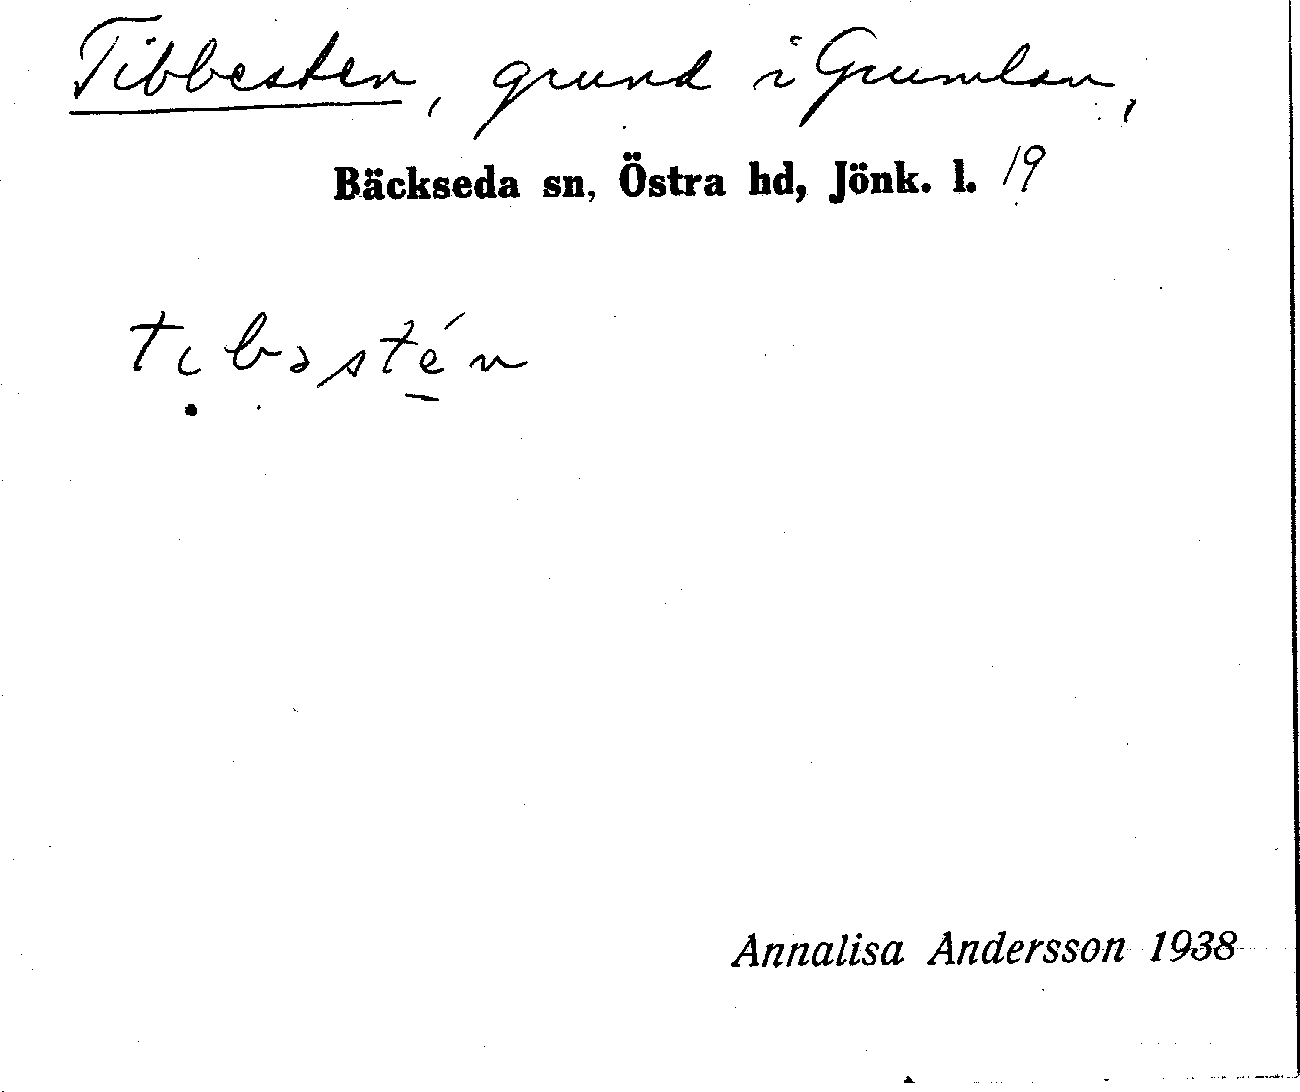 Tibbesten, grund i Grumlan,
Bäckseda sn, Östra hd, Jönk. l. 19
tɩbəstén
Annalisa Andersson 1938